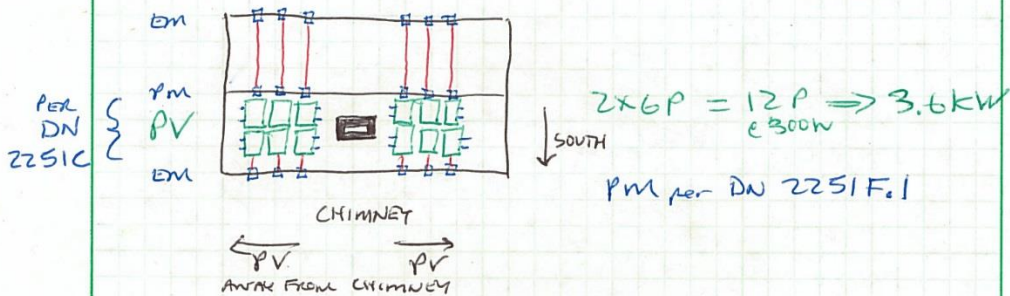 EM
PM
PER
DN
2251C
PV
EM
SOUTH
2x6P = 12P => 3.6kW
@300W
PM per DN 2251F.1
CHIMNEY
PV PV
AWAY FROM CHIMNEY